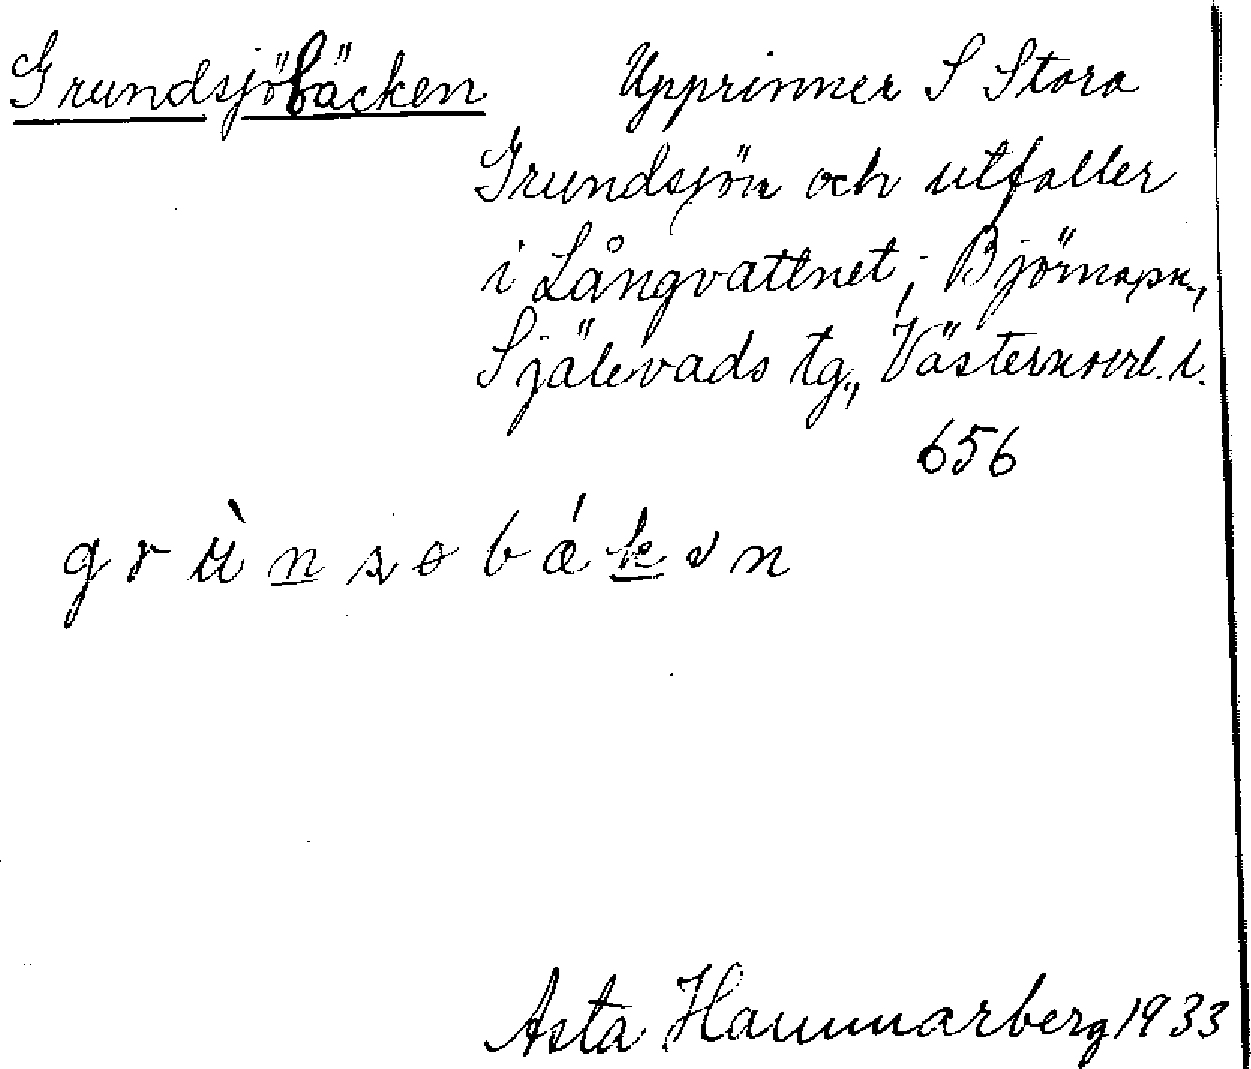 Grundsjöbäcken Upprinner S Stora
Grundsjön och utfaller
i Långvattnet; Björna sn.,
Själevads tg., Västernorrl. l.
656
g r ù n s o b ǽ k ə n
Asta Hammarberg 1933